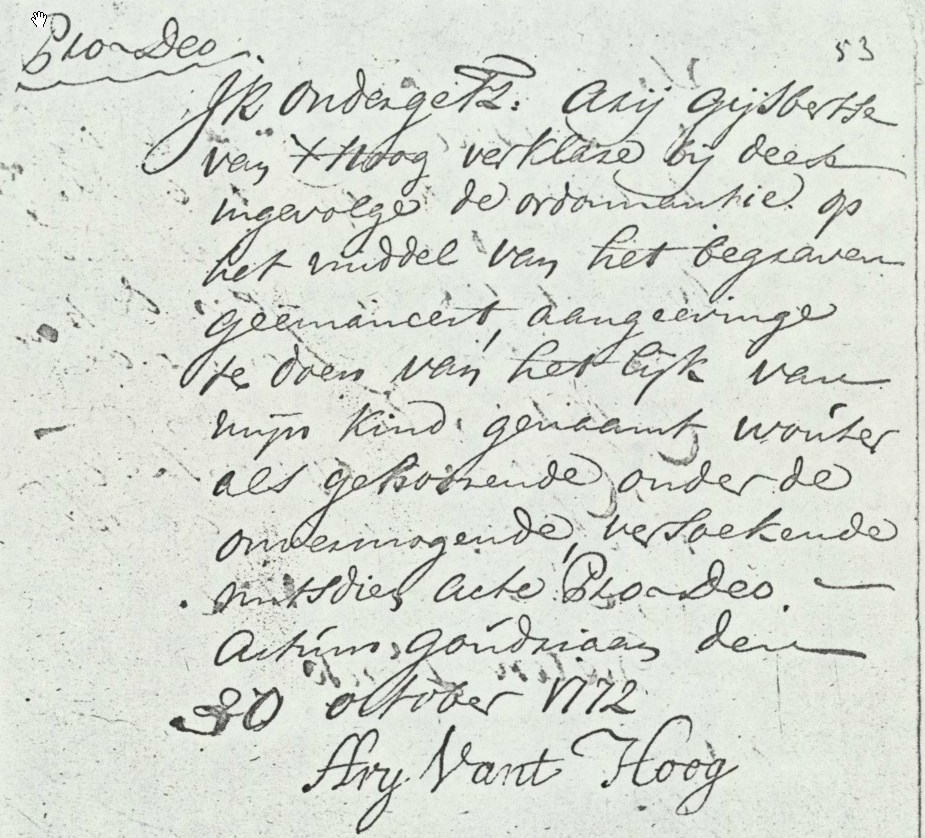 Pro Deo
53
Ik Ondergetz: Arij Gijsbertse
van t Hoog verklare bij deese
ingevolge de ordonnantie op
het middel van het begraven
geemaneert, aangeevinge
te doen van het lijk van
mijn kind genaamt wouter
als gehoorende onder de
onvermogende, versoekende
mitsdien acte Pro Deo
Actum Goudriaan den
30 october 1772
Ary Vant Hoog